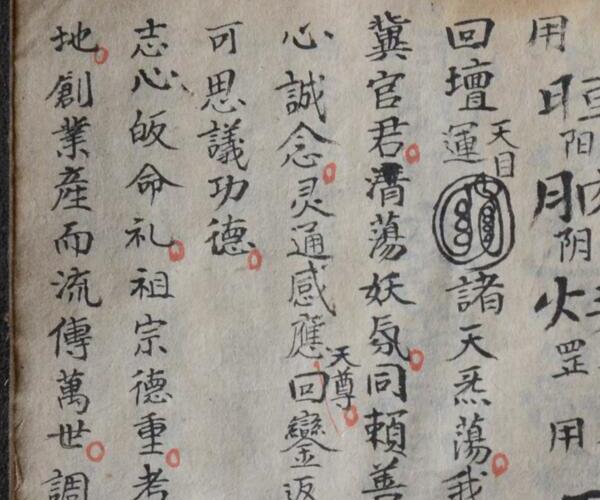 用
阳
阴
火
罡
用
回壇運天目諸天炁蕩我
冀官君清蕩妖氛同賴善
心誠念灵通感應天尊回鑾返
可思議功德
志心皈命礼祖宗德重考
地創業産而流傳萬世調